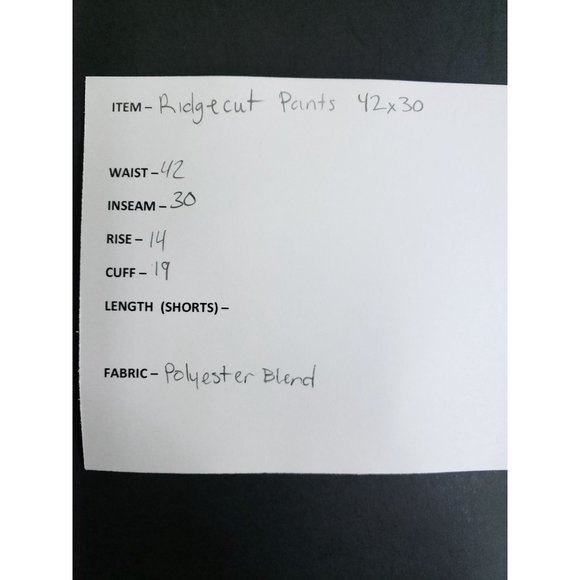 ITEM – Ridgecut Pants 42x30
WAIST – 42
INSEAM – 30
RISE – 14
CUFF – 19
LENGTH (SHORTS) –
FABRIC – Polyester Blend